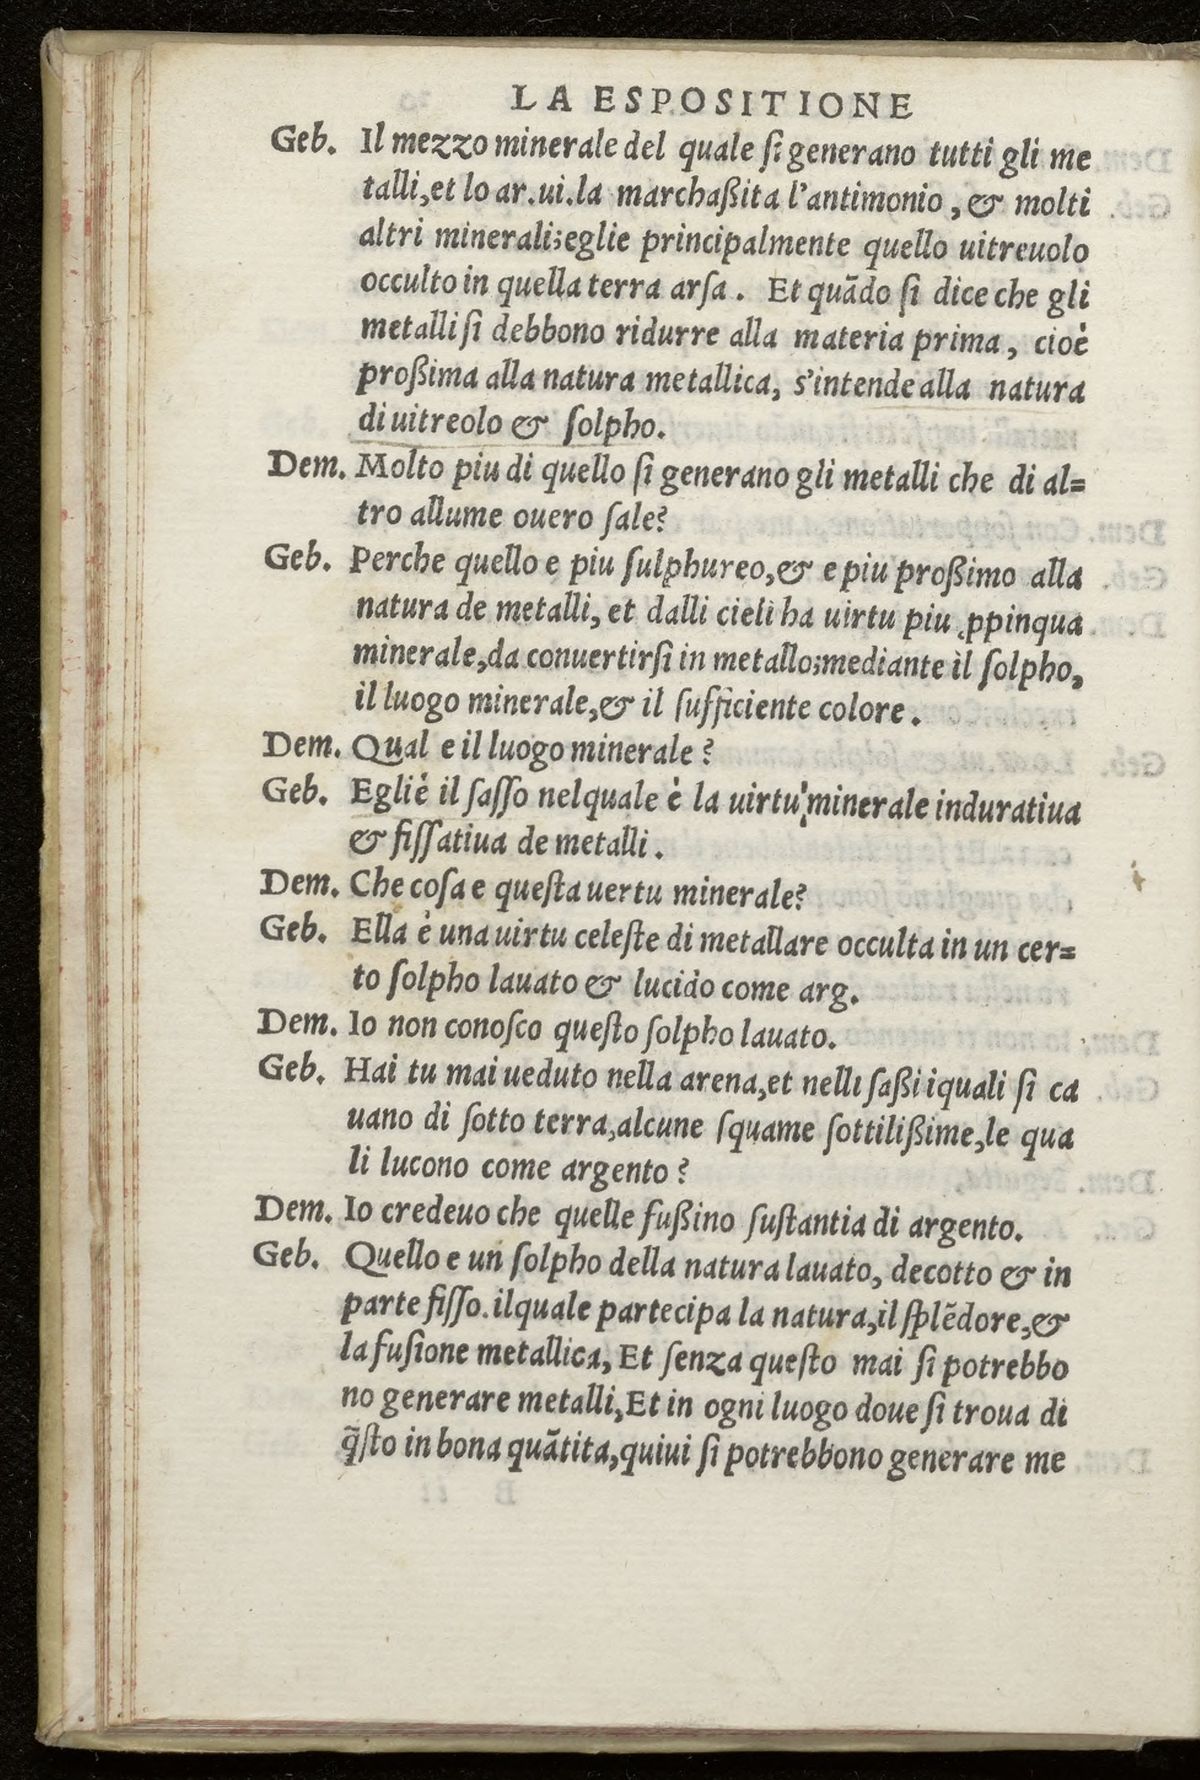 LA ESPOSITIONE
Geb. Il mezzo minerale del quale ſi generano tutti gli me
talli, et lo ar. ui. la marchaßita l'antimonio, & molti
altri minerali; eglie principalmente quello uitreuolo
occulto in quella terra arſa. Et quādo ſi dice che gli
metalli ſi debbono ridurre alla materia prima, cioè
proßima alla natura metallica, s'intende alla natura
di uitreolo & ſolpho.
Dem. Molto piu di quello ſi generano gli metalli che di al=
tro allume ouero ſale?
Geb. Perche quello e piu ſulphureo, & e piu proßimo alla
natura de metalli, et dalli cieli ha uirtu piu ꝓpinqua
minerale, da conuertirſi in metallo; mediante il ſolpho,
il luogo minerale, & il ſufficiente colore.
Dem. Qual e il luogo minerale?
Geb. Eglié il ſaſſo nelquale è la uirtu minerale induratiua
& fiſſatiua de metalli.
Dem. Che coſa e queſta uertu minerale?
Geb. Ella è una uirtu celeſte di metallare occulta in un cer=
to ſolpho lauato & lucido come arg.
Dem. Io non conoſco queſto ſolpho lauato.
Geb. Hai tu mai ueduto nella arena, et nelli ſaßi iquali ſi ca
uano di ſotto terra, alcune ſquame ſottilißime, le qua
li lucono come argento?
Dem. Io credeuo che quelle fußino ſuſtantia di argento.
Geb. Quello e un ſolpho della natura lauato, decotto & in
parte fiſſo. ilquale partecipa la natura, il ſplēdore, &
la fuſione metallica, Et ſenza queſto mai ſi potrebbo
no generare metalli, Et in ogni luogo doue ſi troua di
q̃ſto in bona quātita, quiui ſi potrebbono generare me